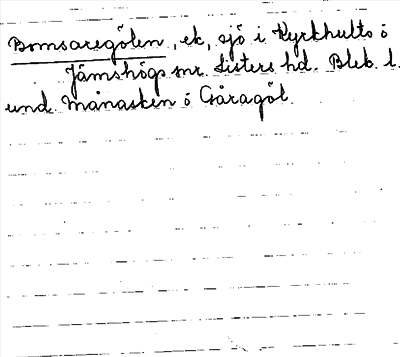 Bomsaregölen, ek, sjö i Kyrkhults ö
Jämshögs snr. Listers hd. Blek. l.
und. Månasken ö Gåragöl.